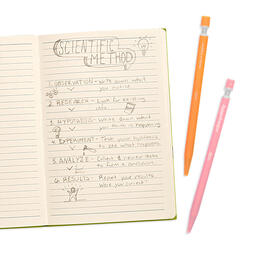 SCIENTIFIC
METHOD
1. OBSERVATION - Write down what
you notice.
2. RESEARCH - Look for existing
data.
3. HYPOTHESIS - Write down what
you think is happening.
4. EXPERIMENT - Test your hypothesis
to see what happens.
5. ANALYZE - Collect & review data
to form a conclusion.
6. RESULTS - Report your results.
Were you correct?